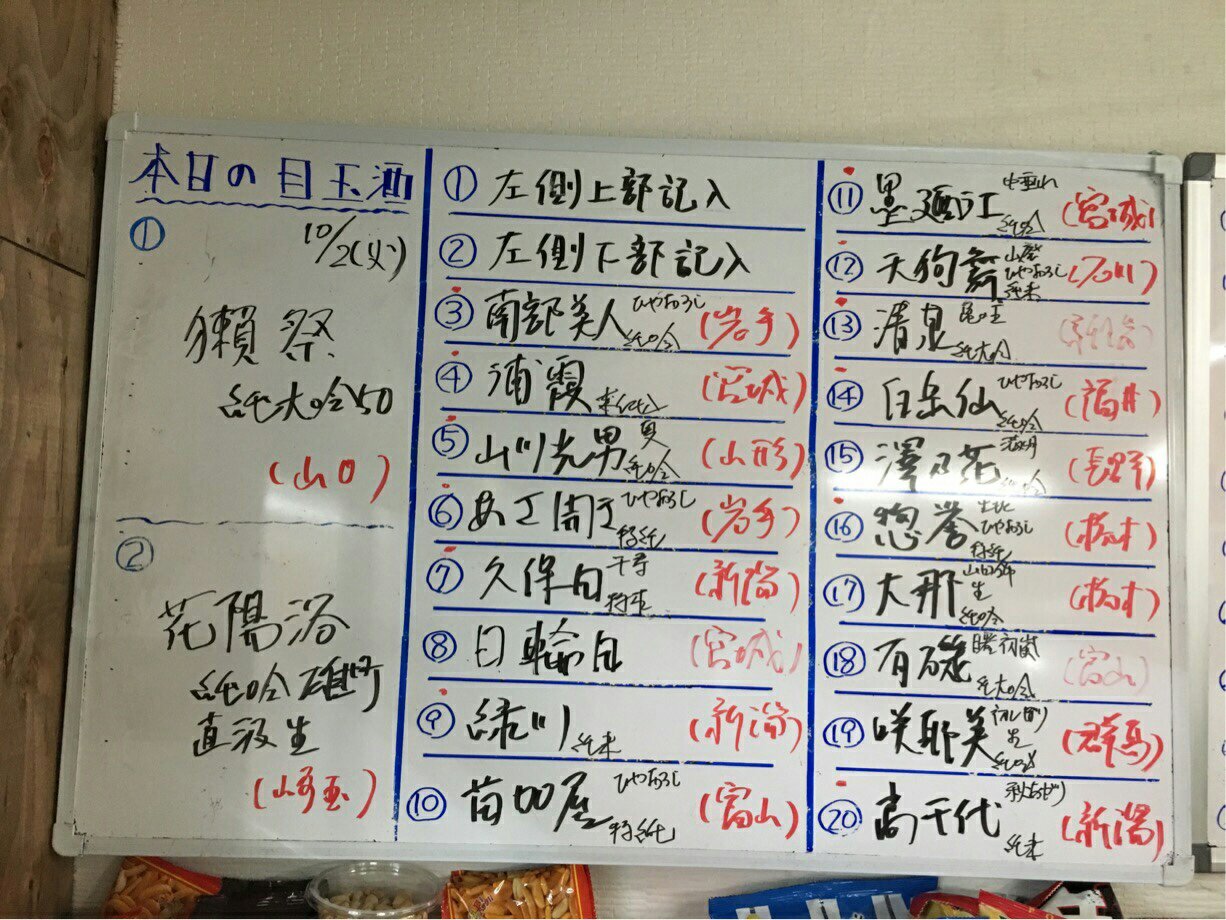 本日の目玉酒
①
10/2(火)
獺祭
純大吟50
(山口)
②
花陽浴
純吟 雄町
直汲生
(埼玉)
① 左側上部記入
② 左側下部記入
③ 南部美人 ひやおろし 純吟 (岩手)
④ 浦霞 (宮城)
⑤ 山川光男 夏 純吟 (山形)
⑥ あさ開 ひやおろし 特純 (岩手)
⑦ 久保田 千寿 (新潟)
⑧ 日輪田 (宮城)
⑨ 緑川 純米 (新潟)
⑩ 苗加屋 ひやおろし 特純 (富山)
⑪ 墨廼江 中垂れ 純吟 (宮城)
⑫ 天狗舞 山廃 ひやおろし 純米 (石川)
⑬ 清泉 亀の王 純大吟 (新潟)
⑭ 白岳仙 ひやおろし 純吟 (福井)
⑮ 澤乃花 純吟 (長野)
⑯ 惣誉 生酛 ひやおろし 特純 (栃木)
⑰ 大那 生 純吟 (栃木)
⑱ 有磯 曙 初嵐 純大吟 (富山)
⑲ 咲耶美 初しぼり 生 純吟 (群馬)
⑳ 高千代 秋あがり 純米 (新潟)